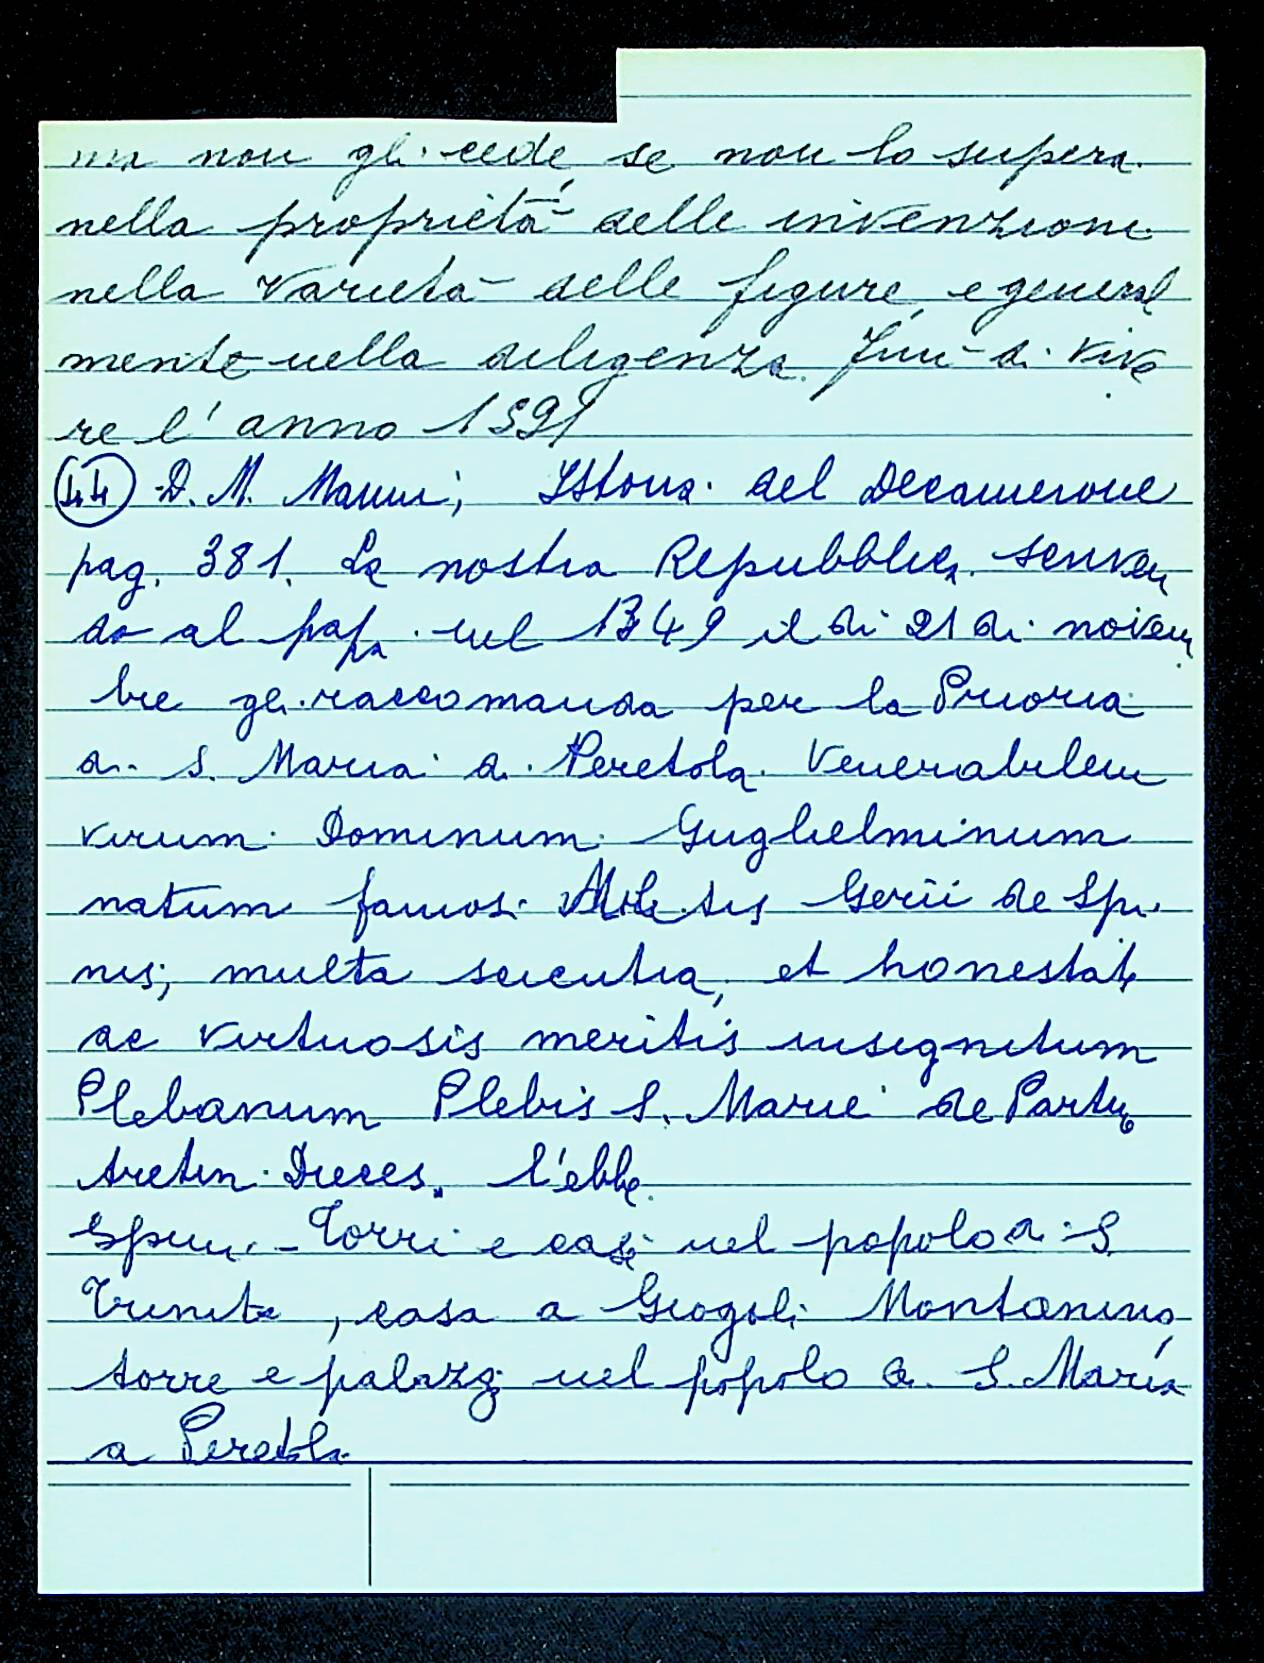 ma non gli cede, se non lo supera
nella proprietà delle invenzioni
nella varietà delle figure, e general
mente nella diligenza. Finì di vive
re l'anno 1591
(44) D. M. Manni; Istoria del Decamerone
pag. 381. La nostra Repubblica scriven
do al papa nel 1349 il di 21 di novem
bre gli raccomanda per la Prioria
di S. Maria a Peretola Venerabilem
virum Dominum Guglielminum
natum famosi Militis Gerii de Spi
nis; multa scientia, et honestate
ac virtuosis meritis insignitum
Plebanum Plebis S. Marie de
Aretin. Dieces. l'ebbe
Spini - Torri e case nel popolo di S
Trinita, casa a Giogoli Montanino
torre e palazzi nel popolo di S. Maria
a Peretola